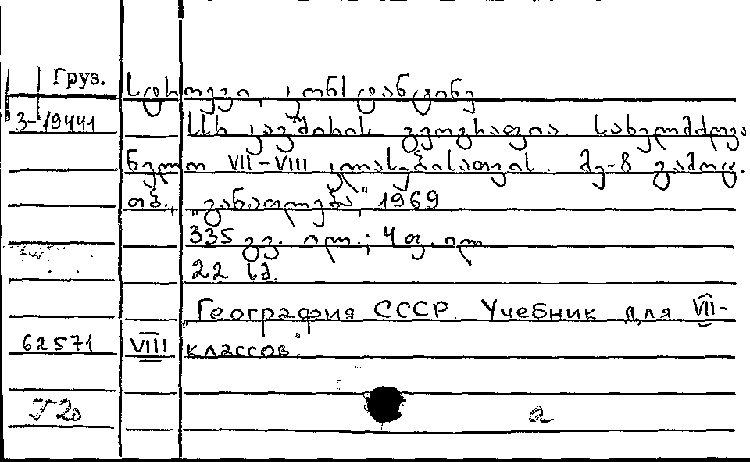 Груз.
სტროევი, კონსტანტინე
3-19441
სსრ კავშირის გეოგრაფია. სახელმძღვა
ნელო VII-VIII კლასებისათვის. მე-8 გამოც.
თბ., „განათლება“, 1969
335 გვ. ილ.; 4 ფ. ილ.
22 სმ.
„География СССР. Учебник для VII-
62571 VIII классов“.
T20 a